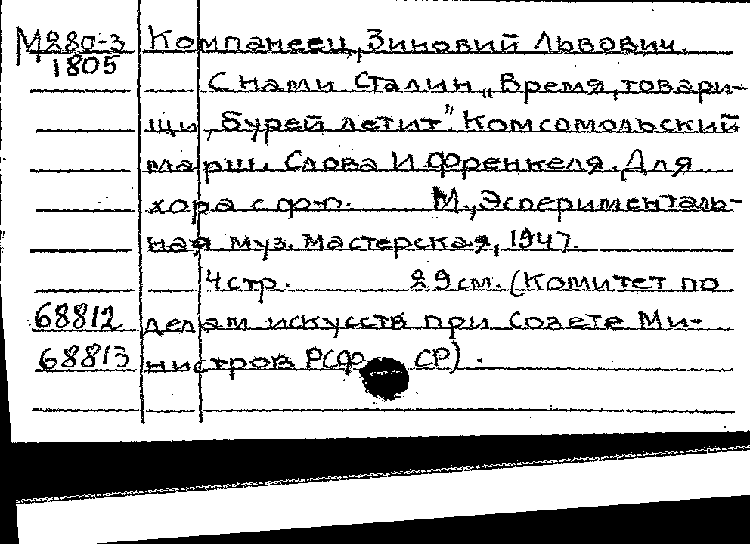 М280-3 Компанеец, Зиновий Львович.
1805
С нами Сталин „Время, товари-
щи, бурей летит". Комсомольский
марш. Слова И. Френкеля. Для
хора с ф-п. М., Эсперименталь-
ная муз. мастерская, 1947.
4 стр. 29 см. (Комитет по
68812 делам искусств при Совете Ми-
68813 нистров РСФСР).